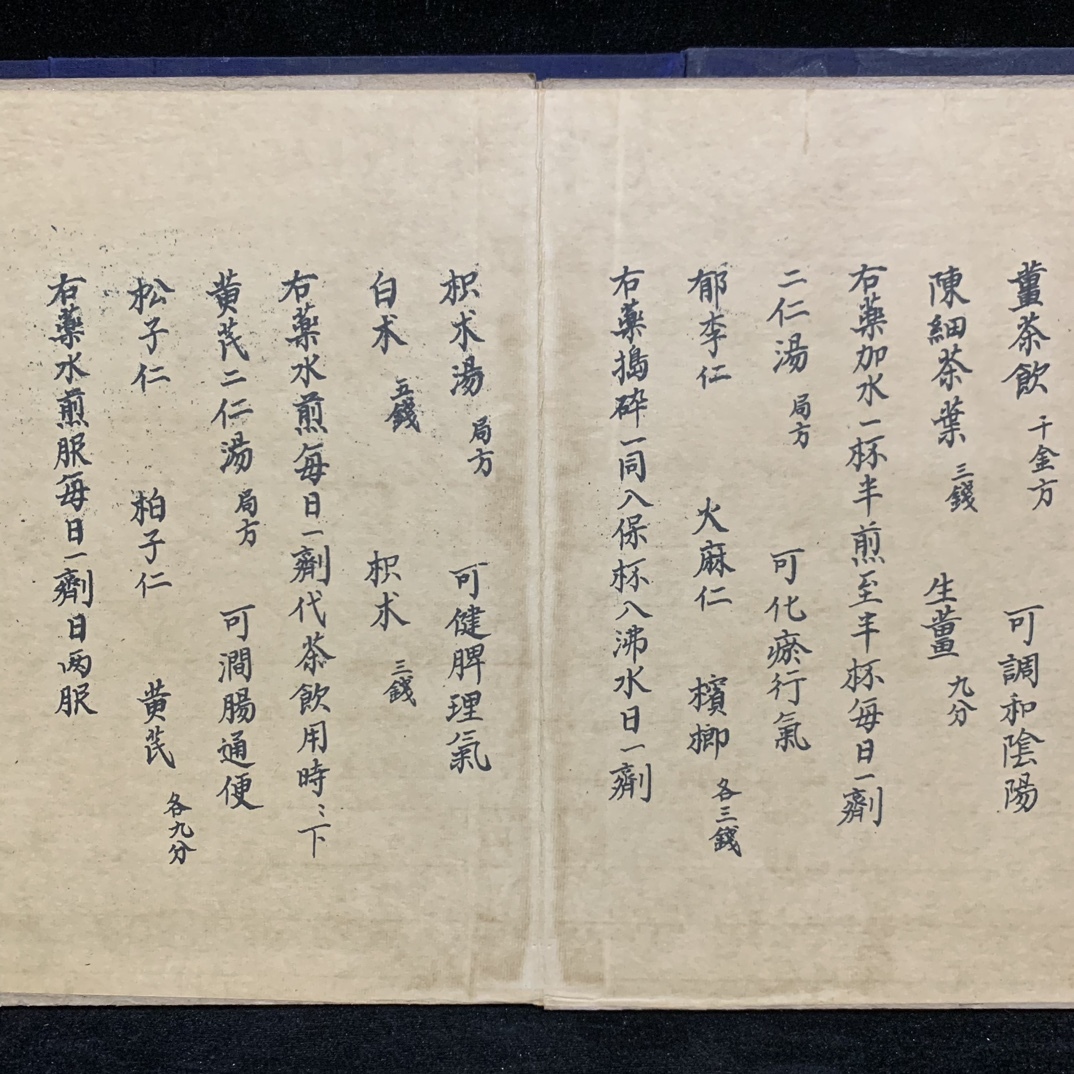 薑茶飲 千金方 可調和陰陽
陳細茶葉 三錢 生薑 九分
右藥加水一杯半煎至半杯每日一劑
二仁湯 局方 可化瘀行氣
郁李仁 火麻仁 檳榔 各三錢
右藥搗碎一同入保杯入沸水日一劑
枳朮湯 局方 可健脾理氣
白朮 五錢 枳朮 三錢
右藥水煎每日一劑代茶飲用時〻下
黄芪二仁湯 局方 可澗腸通便
松子仁 柏子仁 黄芪 各九分
右藥水煎服每日一劑日两服